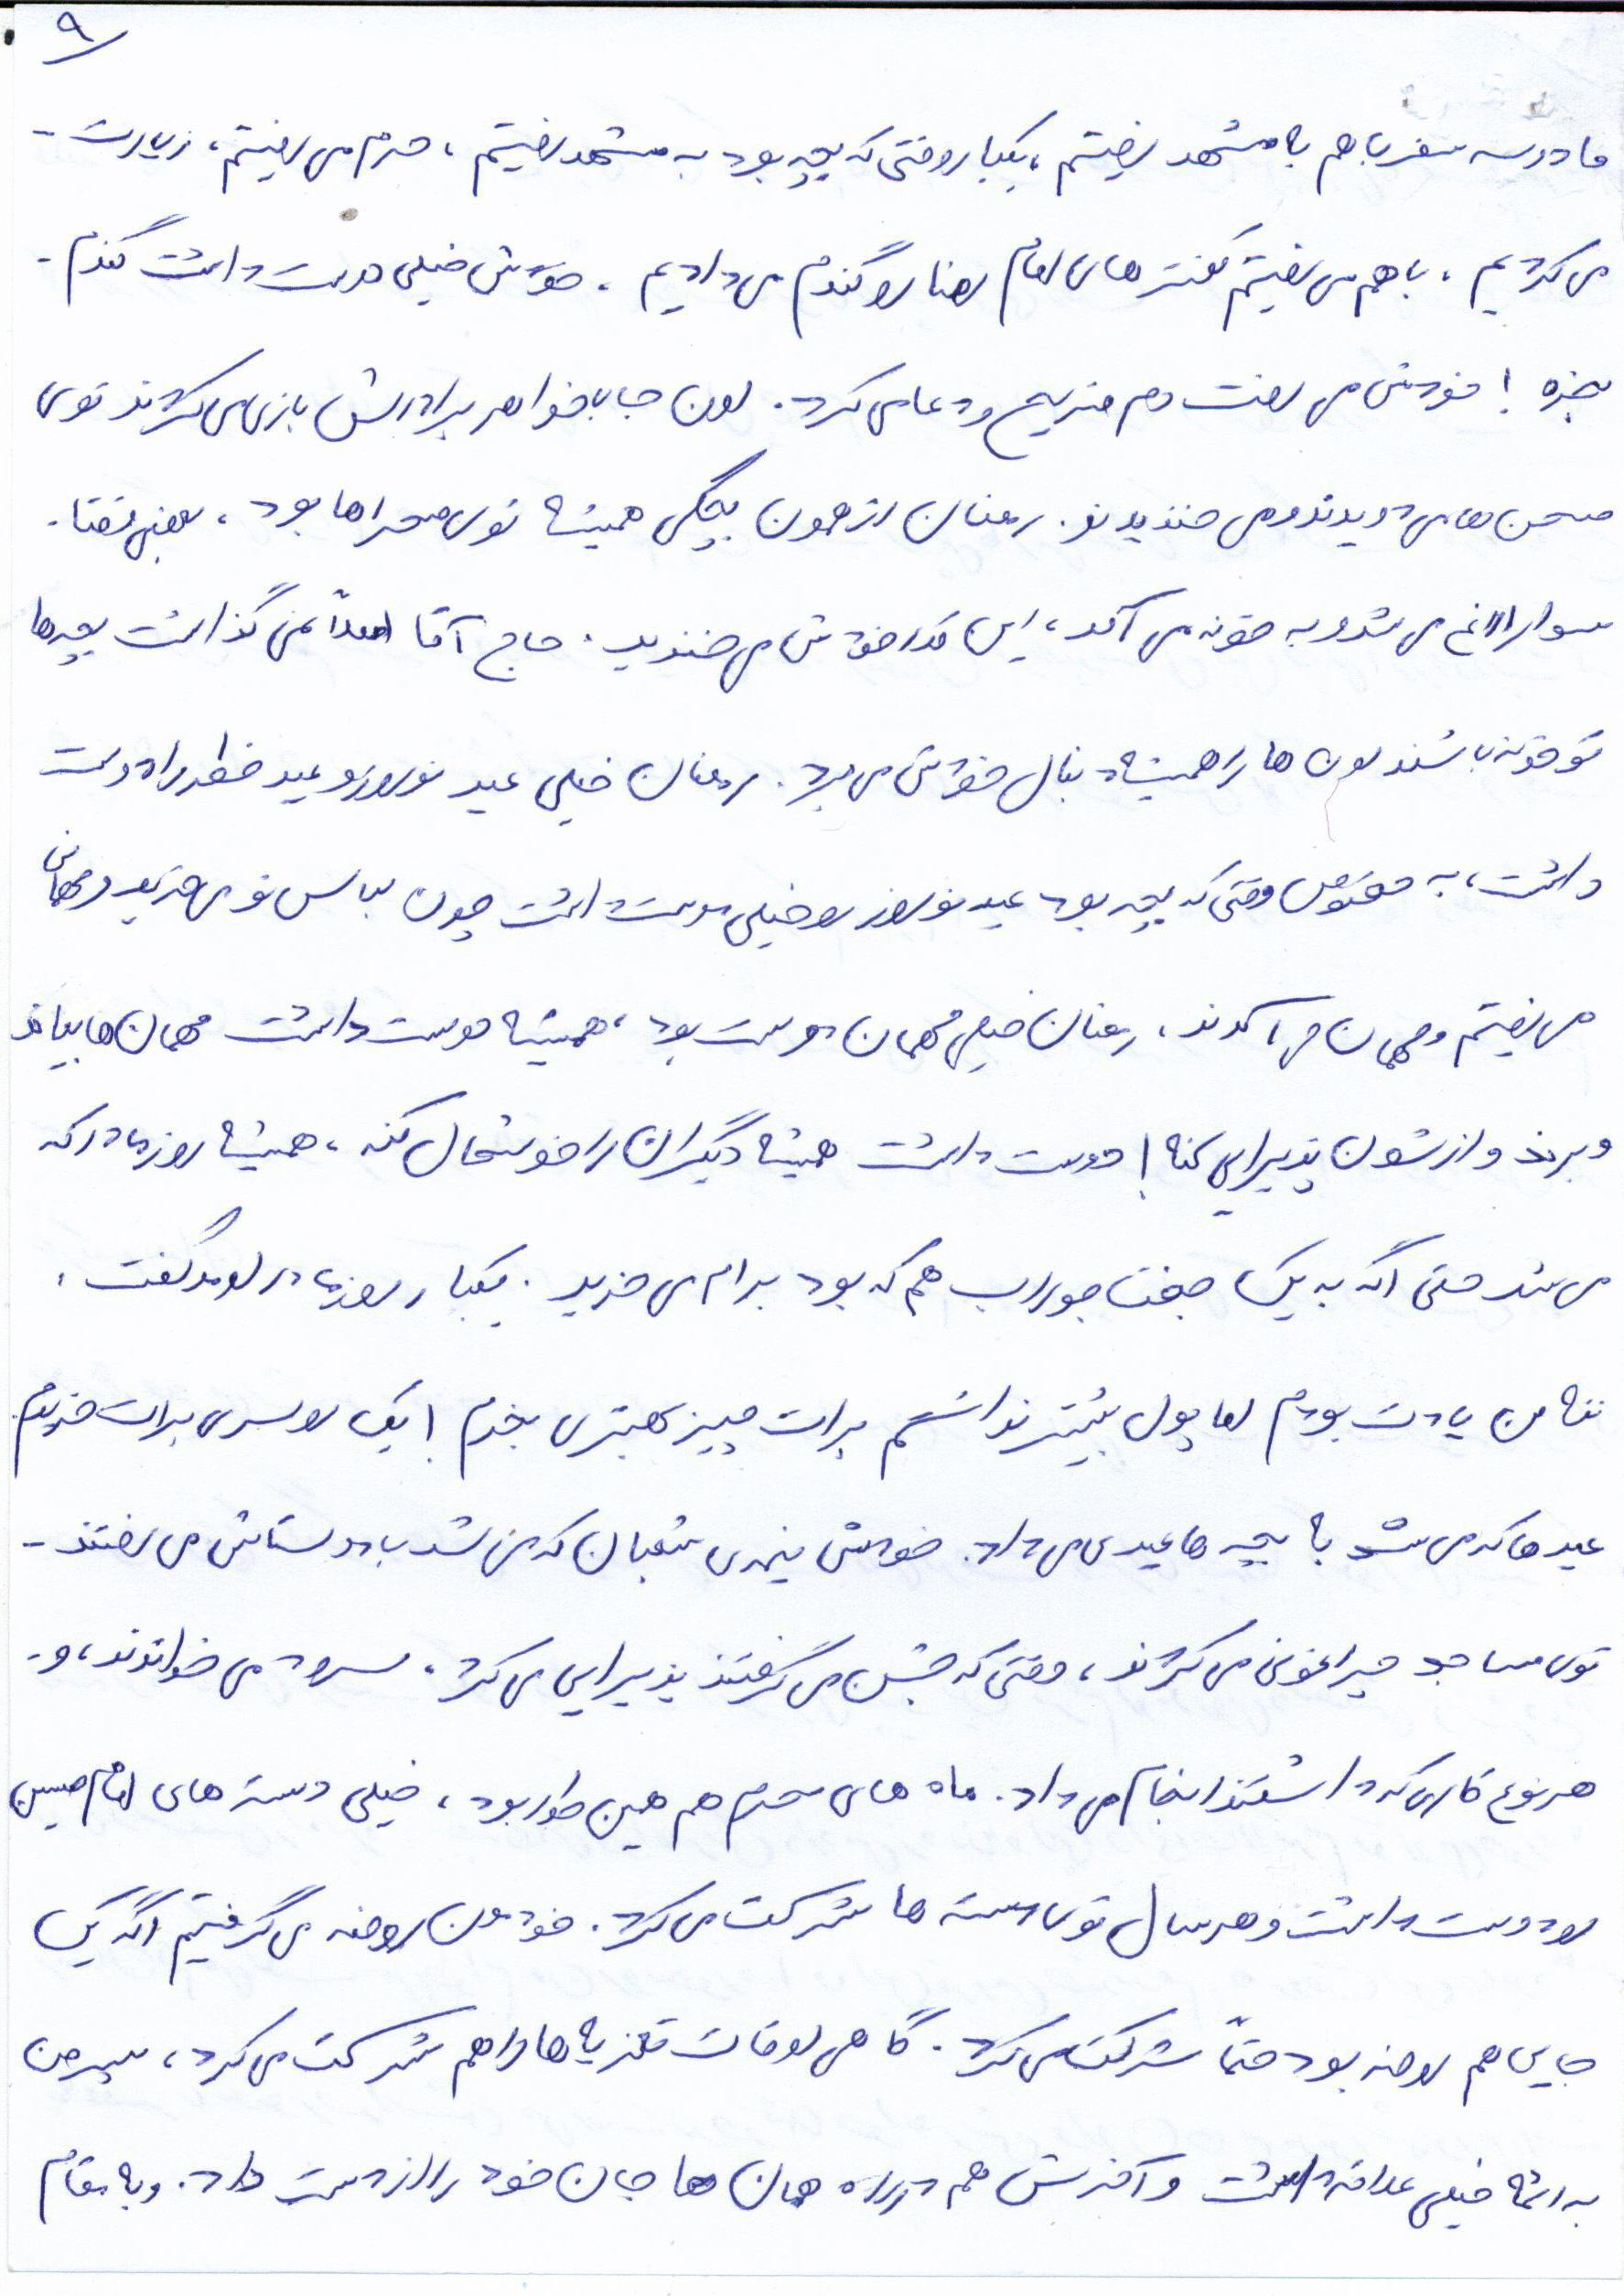 ۹
ما دو سه سفر با هم به مشهد رفتیم، یکبار وقتی که بچه بود به مشهد رفتیم، حرم می رفتیم، زیارت -
می کردیم، با هم می رفتیم کفترهای امام رضا رو گندم می دادیم. خودش خیلی دوست داشت گندم -
بخره! خودش می رفت دم ضریح و دعا می کرد. اون جا با خواهر برادرش بازی می کردند توی
صحن ها می دویدند و می خندیدند. رمضان از همون بچگی همیشه توی صحراها بود، بعضی وقتا -
سوار الاغ می شد و به خونه می آمد، این قدر خودش می خندید. حاج آقا اصلاً نمی گذاشت بچه ها
تو خونه باشند اون ها را همیشه دنبال خودش می برد. رمضان خیلی عید نوروز و عید فطر را دوست
داشت، به خصوص وقتی که بچه بود عید نوروز رو خیلی دوست داشت چون لباس نو می خرید و مهمانی
می رفتیم و مهمان می آمدند، رمضان خیلی مهمان دوست بود، همیشه دوست داشت مهمان ها بیاند
و برند و ازشون پذیرایی کنه! دوست داشت همیشه دیگران را خوشحال کنه، همیشه روز مادر که
می شد حتی اگه به یک جفت جوراب هم که بود برام می خرید. یکبار روز مادر اومد گفت:
ننه من یادت بودم اما پول بیشتر نداشتم برات چیز بهتری بخرم! یک روسری برات خریدم.
عیدها که می شد به بچه ها عیدی می داد. خودش نیمه ی شعبان که می شد با دوستاش می رفتند -
توی مساجد چراغونی می کردند، وقتی که جشن می گرفتند پذیرایی می کرد. سرود می خواندند، و -
هر نوع کاری که داشتند انجام می داد. ماه های محرم هم همین طور بود، خیلی دسته های امام حسین
رو دوست داشت و هر سال توی دسته ها شرکت می کرد. خودمون روضه می گرفتیم اگه یک
جایی هم روضه بود حتماً شرکت می کرد. گاهی اوقات تعزیه ها را هم شرکت می کرد، پسر من
به ائمه خیلی علاقه داشت و آخرش هم در راه همان ها جان خود را از دست داد. و به مقام